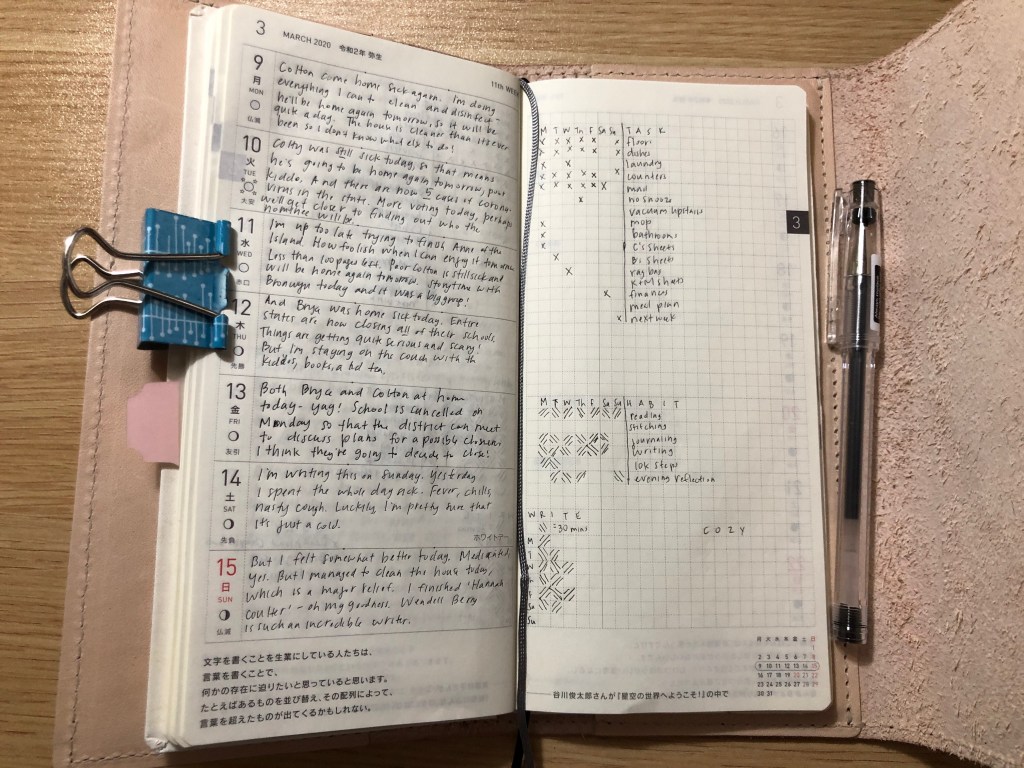 3 MARCH 2020 令和2年 弥生
11th WEEK
9
月
MON
仏滅
Colton came home sick again. I'm doing
everything I can to clean and disinfect-
he'll be home again tomorrow, so it will be
quite a day. The house is cleaner than it's ever
been so I don't know what else to do!
10
火
TUE
大安
Colty was still sick today, so that means
he's going to be home again tomorrow, poor
kiddo. And there are now 5 cases of corona-
virus in the state. More voting today, perhaps
we'll get closer to finding out who the
nominee will be
11
水
WED
赤口
I'm up too late trying to finish Anne of the
Island. How foolish when I can enjoy it tomorrow
Less than 100 pages left. Poor Colton is still sick and
will be home again tomorrow. Storytime with
Bronwyn today and it was a big group!
12
木
THU
先勝
And Bryce was home sick today. Entire
states are now closing all of their schools.
Things are getting quite serious and scary!
But I'm staying on the couch with the
kiddos, books, and tea.
13
金
FRI
友引
Both Bryce and Colton at home
today- yay! School is cancelled on
Monday so that the district can meet
to discuss plans for a possible closure.
I think they're going to decide to close!
14
土
SAT
先負
I'm writing this on Sunday. Yesterday
I spent the whole day sick. Fever, chills,
nasty cough. Luckily, I'm pretty sure that
it's just a cold.
ホワイトデー
15
日
SUN
仏滅
But I felt somewhat better today. Medicated,
yes. But I managed to clean the house today,
which is a major relief. I finished 'Hannah
Coulter' - oh my goodness. Wendell Berry
is such an incredible writer.
文字を書くことを生業にしている人たちは、
言葉を書くことで、
何かの存在に迫りたいと思っていると思います。
たとえばあるものを並び替え、その配列によって、
言葉を超えたものが出てくるかもしれない。
M T W Th F Sa Su TASK
x x x x x x floors
x x x x x x dishes
x x laundry
x x x x x counters
x x x x x x mail
x no snooze
vacuum upstairs
x mop
x bathrooms
x C's sheets
x B's sheets
x rag bag
K+M sheets
x finances
meal plan
x next week
3
M T W Th F Sa Su HABIT
reading
stitching
journaling
writing
10k steps
evening reflection
WRITE
=30 mins
COZY
M
T
W
T
F
Sa
Su
月 火 水 木 金 土 日
1
2 3 4 5 6 7 8
9 10 11 12 13 14 15
16 17 18 19 20 21 22
23 24 25 26 27 28 29
30 31
谷川俊太郎さんが『星空の世界へようこそ!』の中で